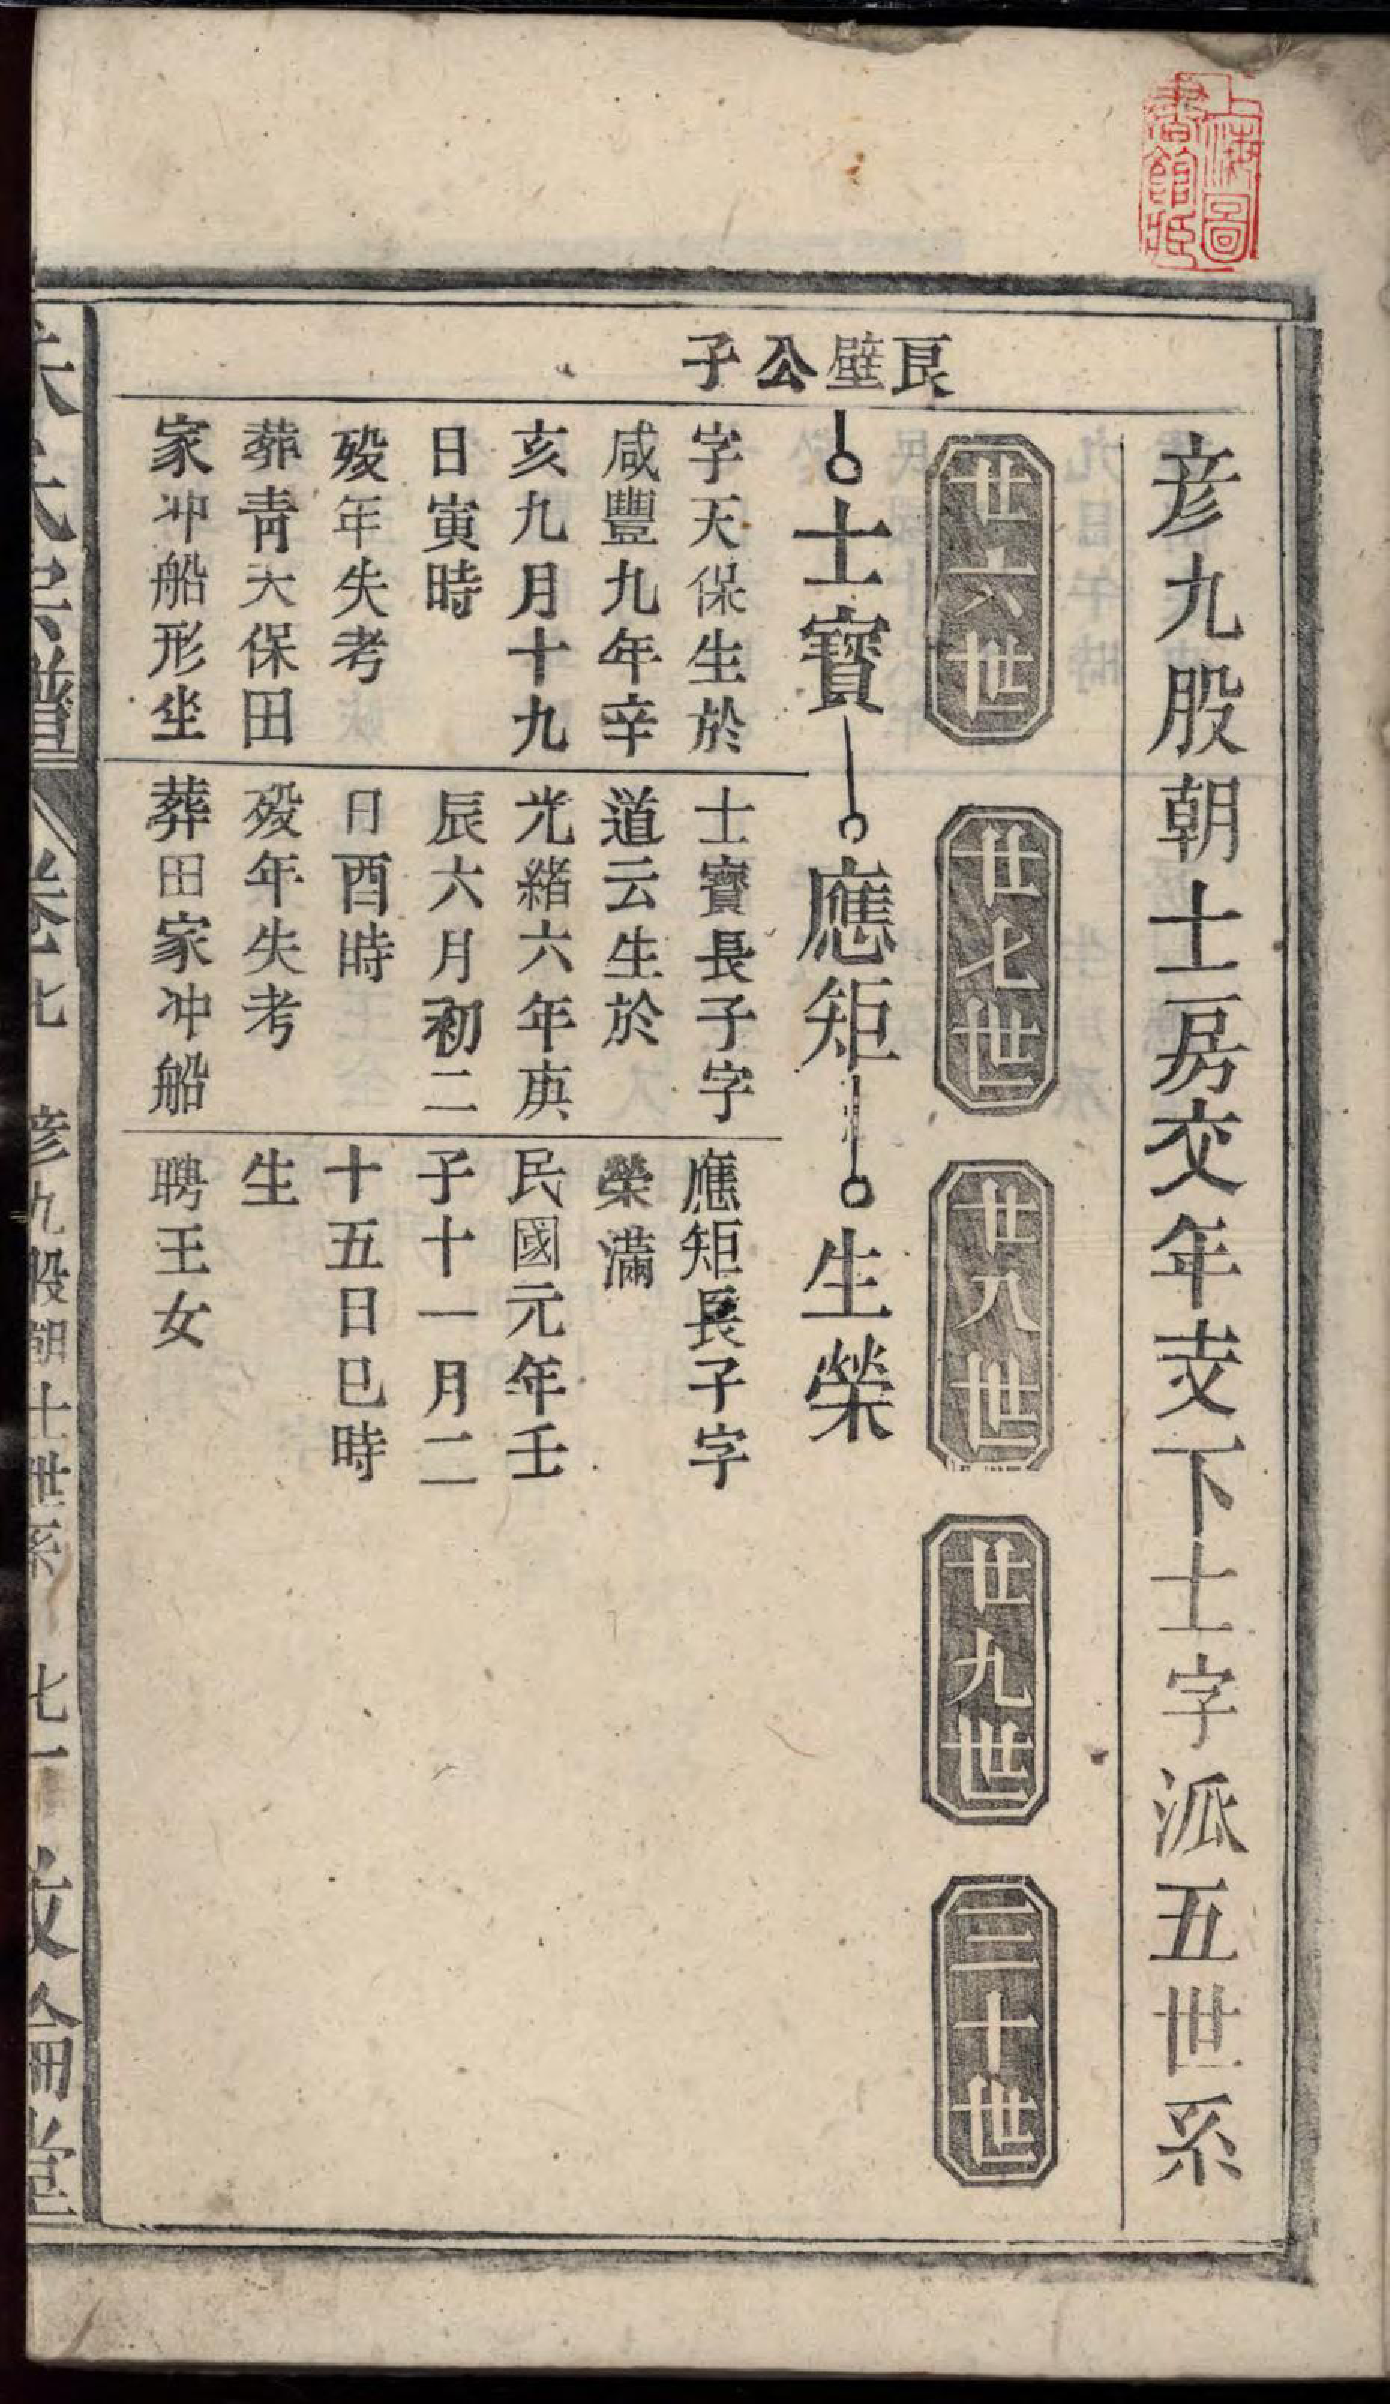 上海圖
書館藏
彦九股朝士房交年支下士字派五世系
廿六世
廿七世
廿八世
廿九世
三十世
良壁公子
士寶
應矩
生榮
字天保生於
咸豐九年辛
亥九月十九
日寅時
殁年失考
葬靑大保田
家冲船形坐
士寶長子字
道云生於
光緒六年庚
辰六月初二
日酉時
殁年失考
葬田家冲船
應矩長子字
榮滿
民國元年壬
子十一月二
十五日巳時
生
聘王女
朱氏宗譜
卷七
彦九股朝士世系
七一
敦倫堂